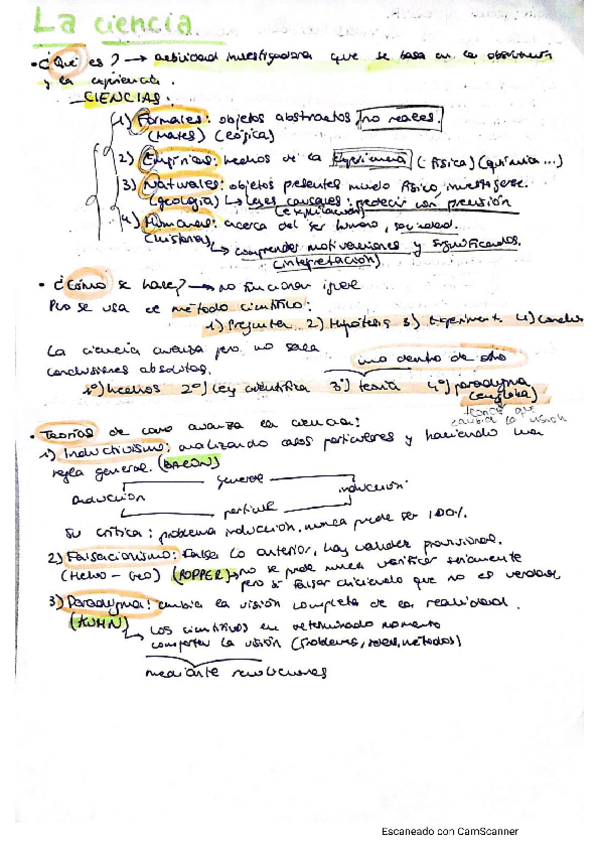 La ciencia
• ¿Qué es? → actividad investigadora que se basa en la observación
y la experiencia.
— CIENCIAS:
1) Formales: objetos abstractos no reales.
(Mates) (Lógica)
2) Empíricas: hechos de la experiencia (física) (química...)
3) Naturales: objetos presentes mundo físico, investigarse.
(geología) ↳ leyes causales: predecir con precisión
(explicación)
4) Humanas: acerca del ser humano, sociedad.
(historia) ↳ comprender motivaciones y significados.
(interpretación)
• ¿Cómo se hace? → no funcionan igual
Pero se usa el método científico:
1) Preguntar 2) Hipótesis 3) Experiment. 4) Conclus
La ciencia avanza pero no saca
conclusiones absolutas.
uno dentro de otro
1º) hechos 2º) Ley científica 3º) teoría 4º) paradigma
(engloba)
teorías que
cambia la visión
• Teorías de como avanza la ciencia:
1) Inductivismo: analizando casos particulares y haciendo una
regla general. (BACON)
general
inducción
particular
Su crítica: problema inducción, nunca puede ser 100%.
2) Falsacionismo: Falsa lo anterior, hay validez provisional.
(Helio - Geo) (POPPER) → no se puede nunca verificar seriamente
pero si falsar diciendo que no es verdad
3) Paradigma: cambia la visión completa de la realidad.
(KUHN) ↳ Los científicos en determinado momento
comparten la visión (problemas, métodos)
mediante revoluciones
Escaneado con CamScanner